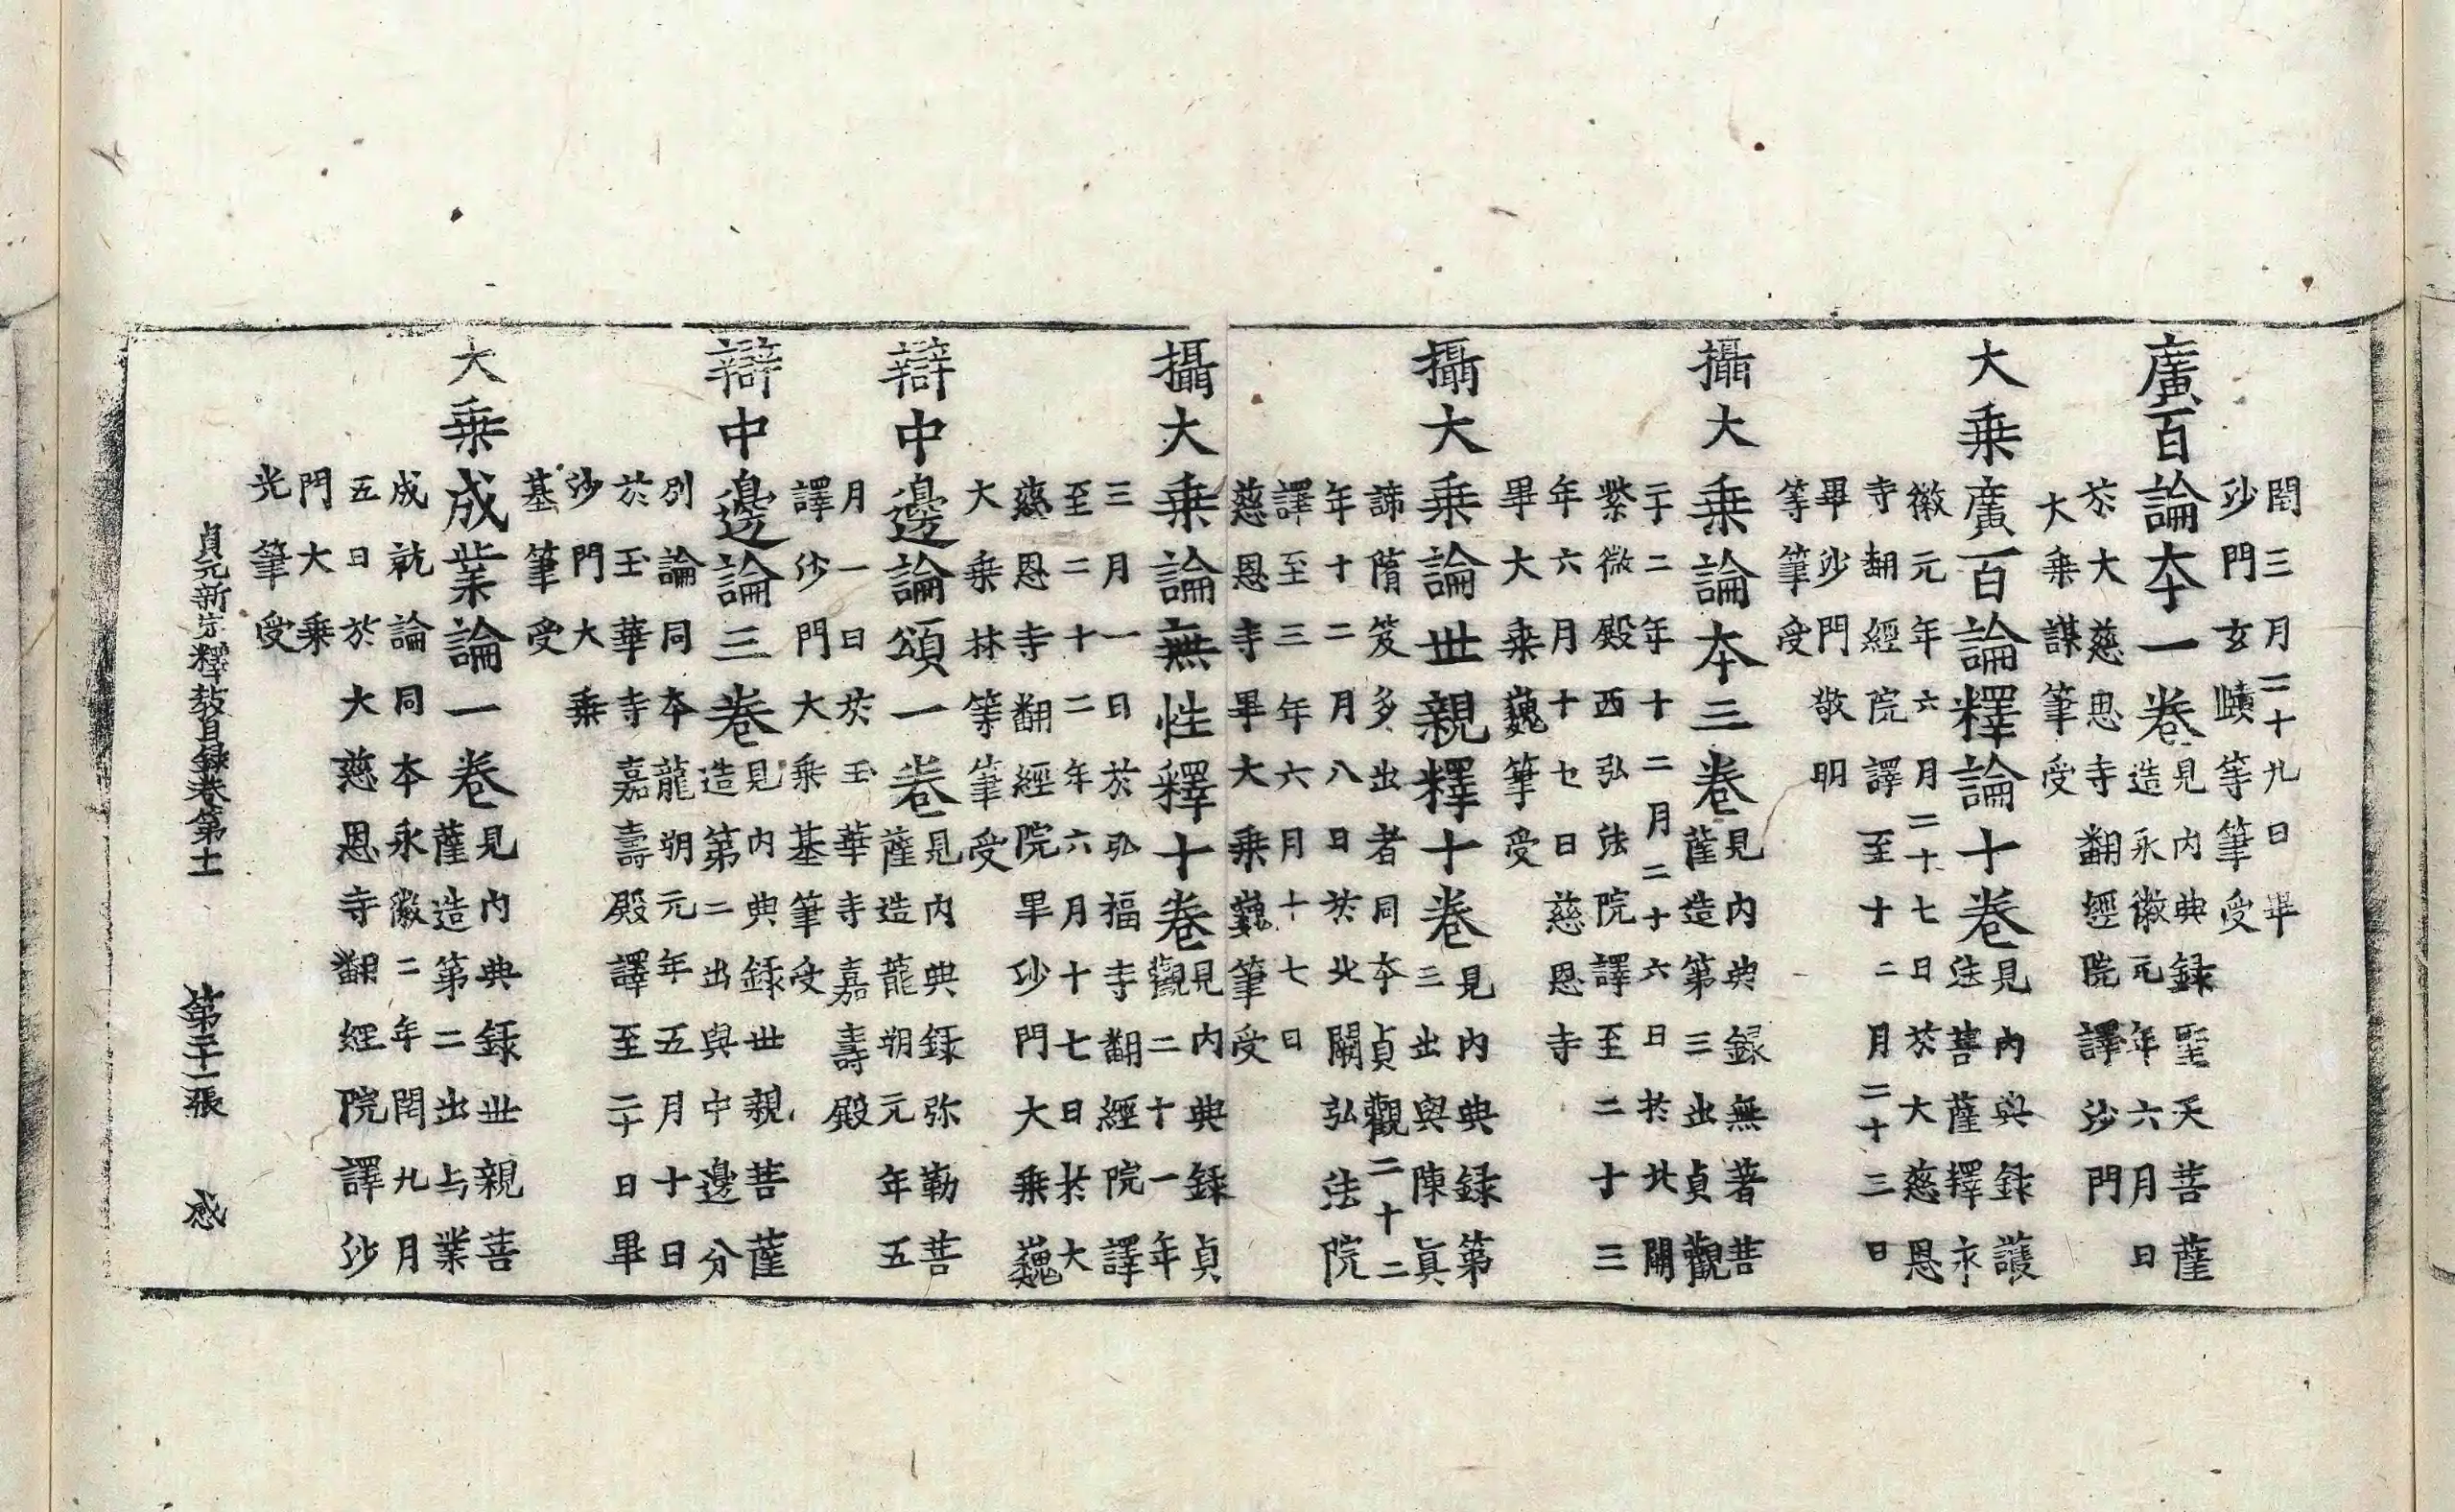 閏三月二十九日畢
沙門玄賾等筆受
廣百論本一卷見內典錄聖天菩薩
造永徽元年六月日
於大慈恩寺翻經院譯沙門
大乘諶筆受
大乘廣百論釋論十卷見內典錄護
法菩薩釋永
徽元年六月二十七日於大慈恩
寺翻經院譯至十二月二十三日
畢沙門敬明
等筆受
攝大乘論本三卷見內典錄無著菩
薩造第三出貞觀
二十二年十二月二十六日於北闕
紫微殿西弘法院譯至二十三
年六月十七日慈恩寺
畢大乘巍筆受
攝大乘論世親釋十卷見內典錄第
三出與陳真
諦隋笈多出者同本貞觀二十二
年十二月八日於北闕弘法院
譯至三年六月十七日
慈恩寺畢大乘巍筆受
攝大乘論無性釋十卷見內典錄貞
觀二十一年
三月一日於弘福寺翻經院譯
至二十二年六月十七日於大
慈恩寺翻經院畢沙門大乘巍
大乘林等筆受
辯中邊論頌一卷見內典錄弥勒菩
薩造龍朔元年五
月一日於玉華寺嘉壽殿
譯沙門大乘基筆受
辯中邊論三卷見內典錄世親菩薩
造第二出與中邊分
別論同本龍朔元年五月十日
於玉華寺嘉壽殿譯至二十日畢
沙門大乘
基筆受
大乘成業論一卷見內典錄世親菩
薩造第二出与業
成就論同本永徽二年閏九月
五日於大慈恩寺翻經院譯沙
門大乘
光筆受
貞元新定釋教目錄卷第十一　第二十二張　感